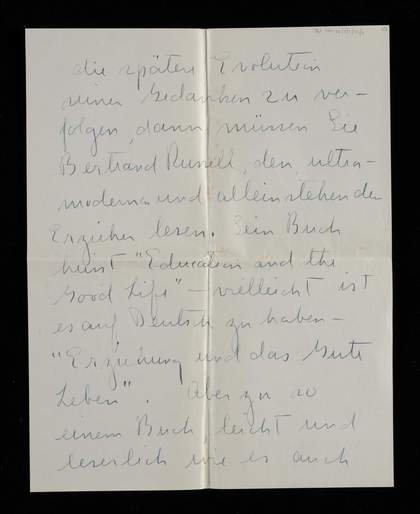 die spätere Evolution
seiner Gedanken zu ver-
folgen, dann müssen Sie
Bertrand Russell, den ultra-
modernen und alleinstehenden
Erzieher lesen. Sein Buch
heisst "Education and the
Good Life" – vielleicht ist
es auf Deutsch zu haben –
"Erziehung und das Gute
Leben". Aber zu so
einem Buch, leicht und
leserlich wie es auch